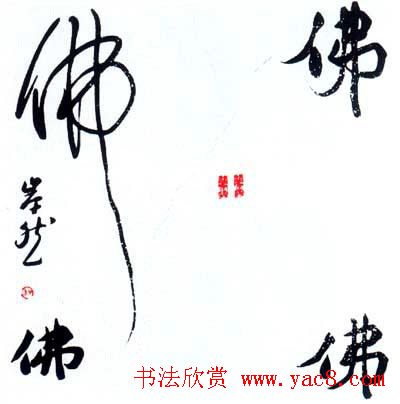 佛
佛
佛
佛
书法欣赏 www.yac8.com